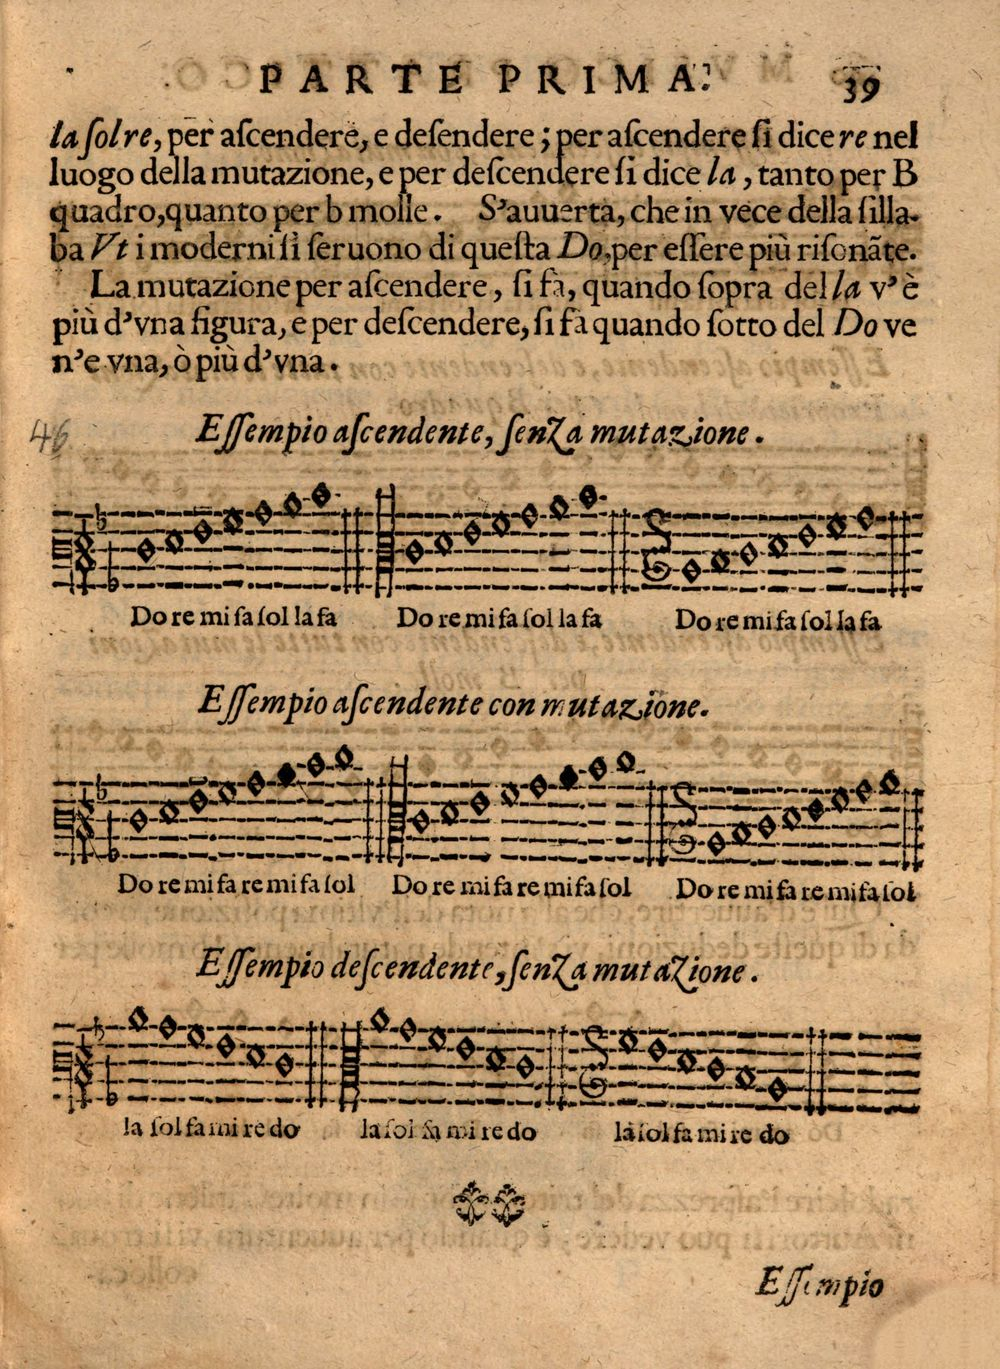 PARTE PRIMA. 39
la ſol re, per aſcendere, e deſendere; per aſcendere ſi dice re nel
luogo della mutazione, e per deſcendere ſi dice la, tanto per B
quadro, quanto per b molle. S'auuerta, che in vece della ſilla-
ba Vt i moderni ſi ſeruono di queſta Do, per eſſere più riſonãte.
La mutazione per aſcendere, ſi fà, quando ſopra del la v'è
più d'vna figura, e per deſcendere, ſi fà quando ſotto del Do ve
n'e vna, ò più d'vna.
46
Eſſempio aſcendente, ſenza mutazione.
Do re mi fa ſol la fa Do re mi fa ſol la fa Do re mi fa ſol la fa
Eſſempio aſcendente con mutazione.
Do re mi fa re mi fa ſol Do re mi fa re mi fa ſol Do re mi fa re mi fa ſol
Eſſempio deſcendente, ſenza mutazione.
la ſol fa mi re do la ſol fa mi re do la ſol fa mi re do
Eſſempio